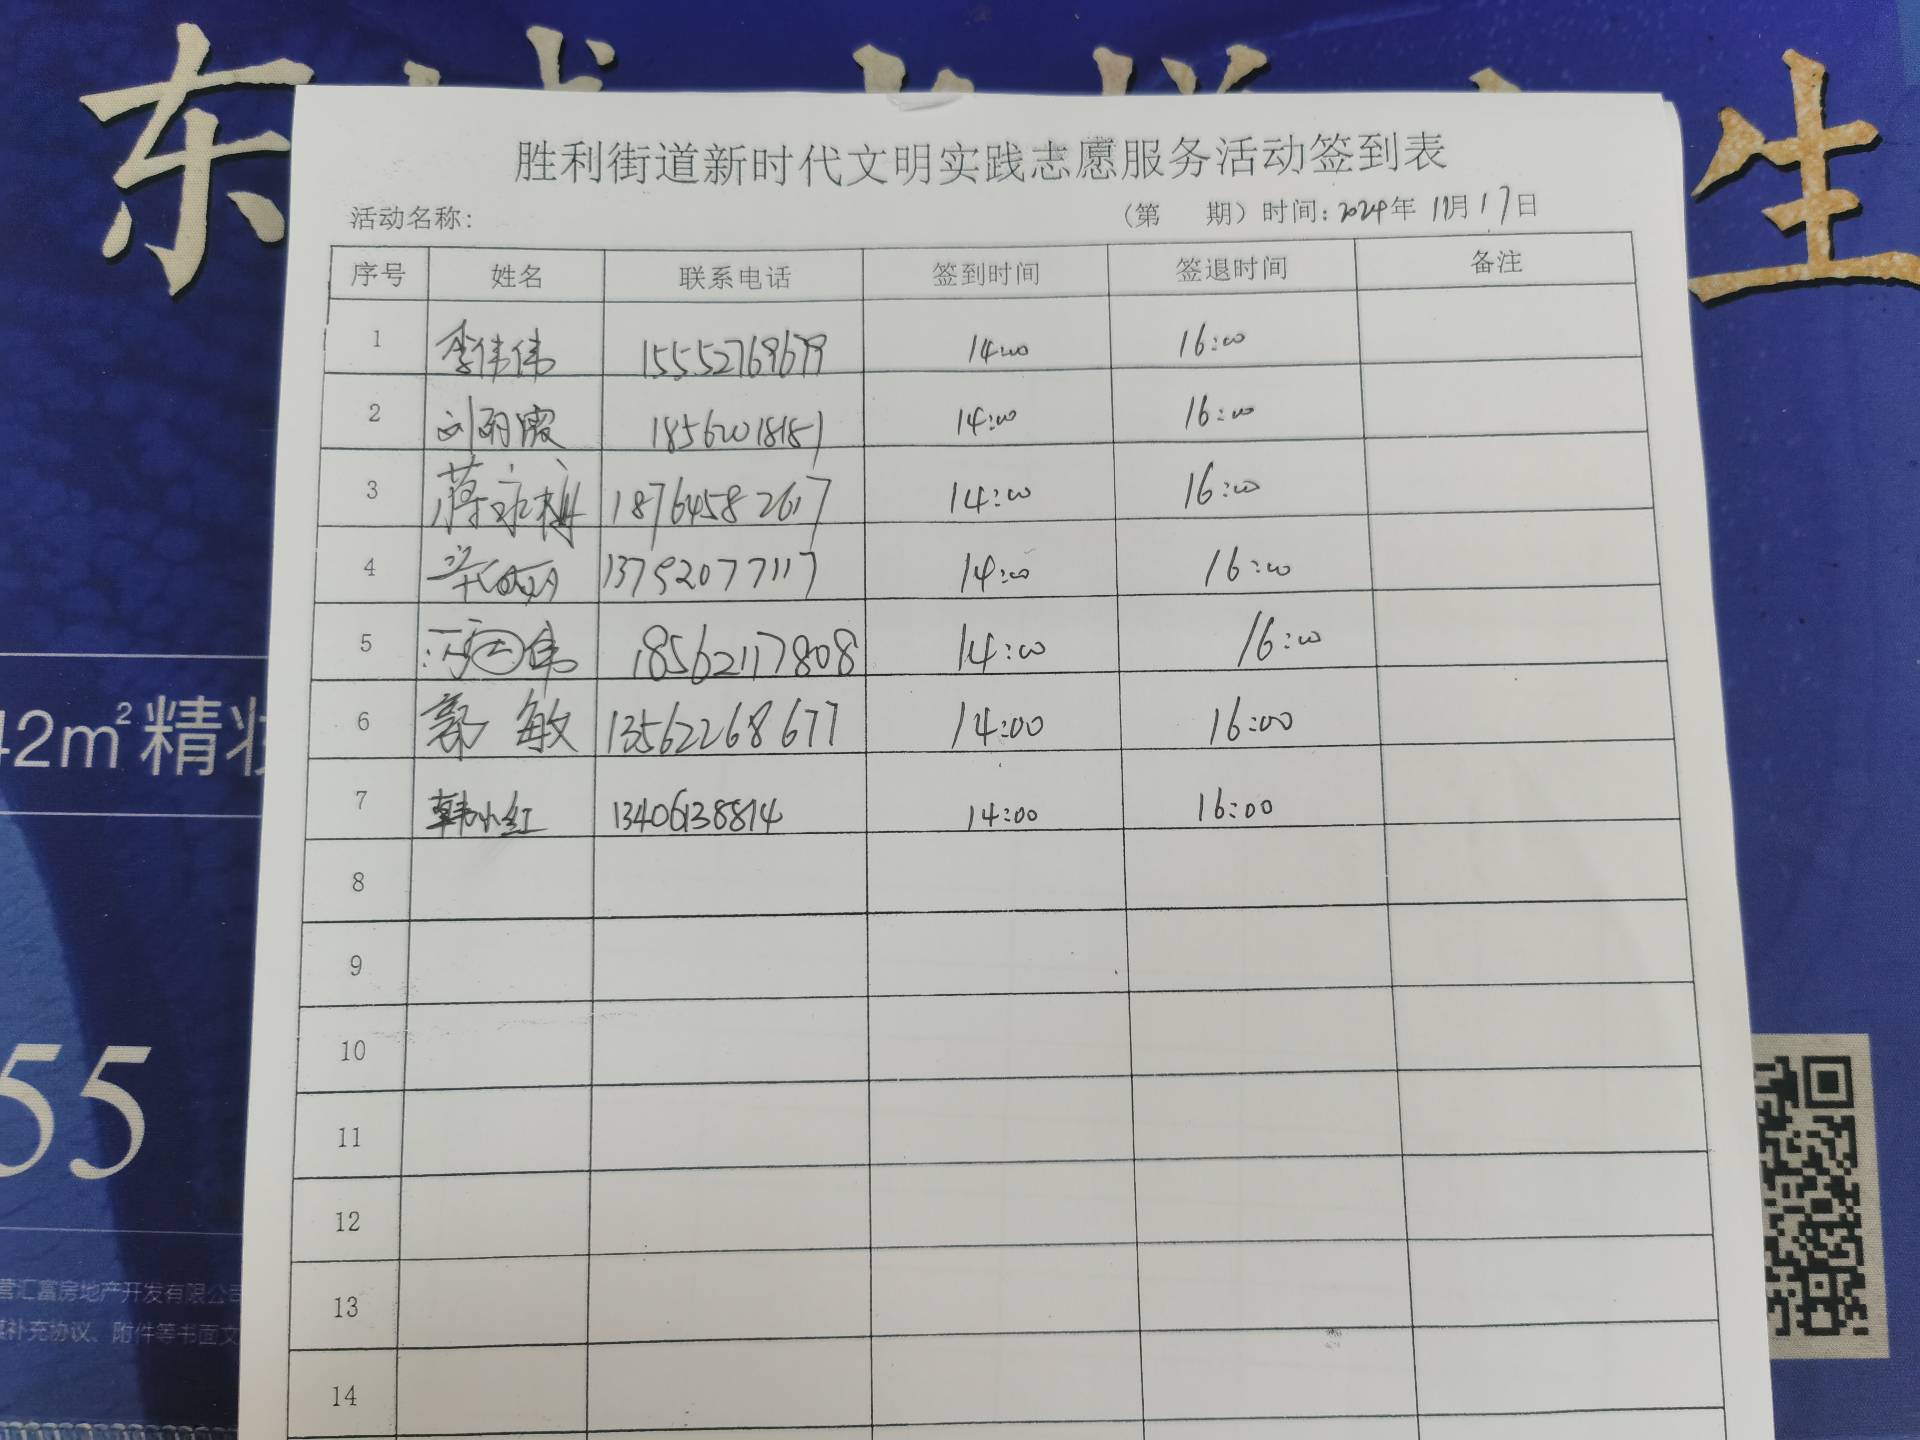 东
生
胜利街道新时代文明实践志愿服务活动签到表
活动名称: (第 期) 时间: 2024年 11月 17日
序号 姓名 联系电话 签到时间 签退时间 备注
1 李伟伟 15552769679 14:00 16:00
2 刘丽霞 18562018181 14:00 16:00
3 蒋永梅 18764582617 14:00 16:00
4 13792077117 14:00 16:00
5 冯国伟 18562117808 14:00 16:00
6 郭敏 13562268677 14:00 16:00
7 韩小红 13406138814 14:00 16:00
8
9
10
11
12
13
14
42m²精装
55
营汇富房地产开发有限公司
补充协议、附件等书面文